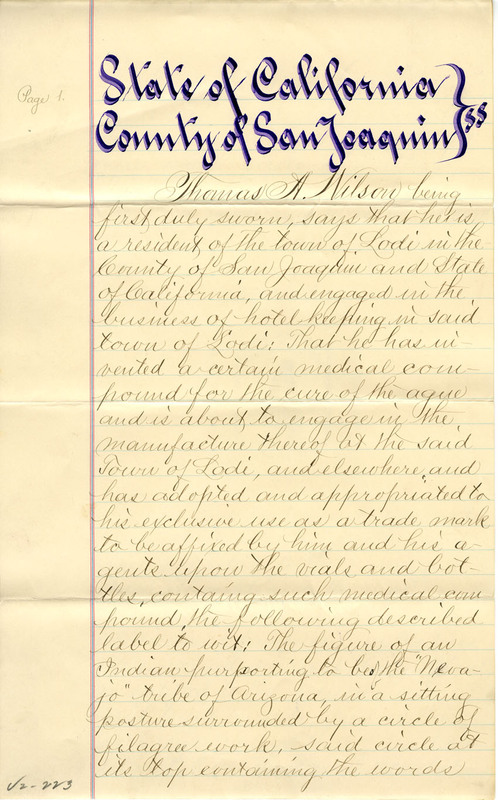 Page 1.
State of California
County of San Joaquin } SS
Thomas A. Wilson being
first duly sworn, says that he is
a resident of the town of Lodi in the
County of San Joaquin and State
of California, and engaged in the
business of hotel keeping in said
town of Lodi: That he has in-
vented a certain medical com-
pound for the cure of the ague
and is about to engage in the
manufacture thereof at the said
Town of Lodi, and elsewhere, and
has adopted and appropriated to
his exclusive use as a trade mark
to be affixed by him and his a-
gents upon the vials and bot-
tles, containg such medical com-
pound, the following described
label to wit: The figure of an
Indian purporting to be of the "Neva-
jo" tribe of Arizona, in a sitting
posture surrounded by a circle of
filagree work, said circle at
its top containing the words
V2-223